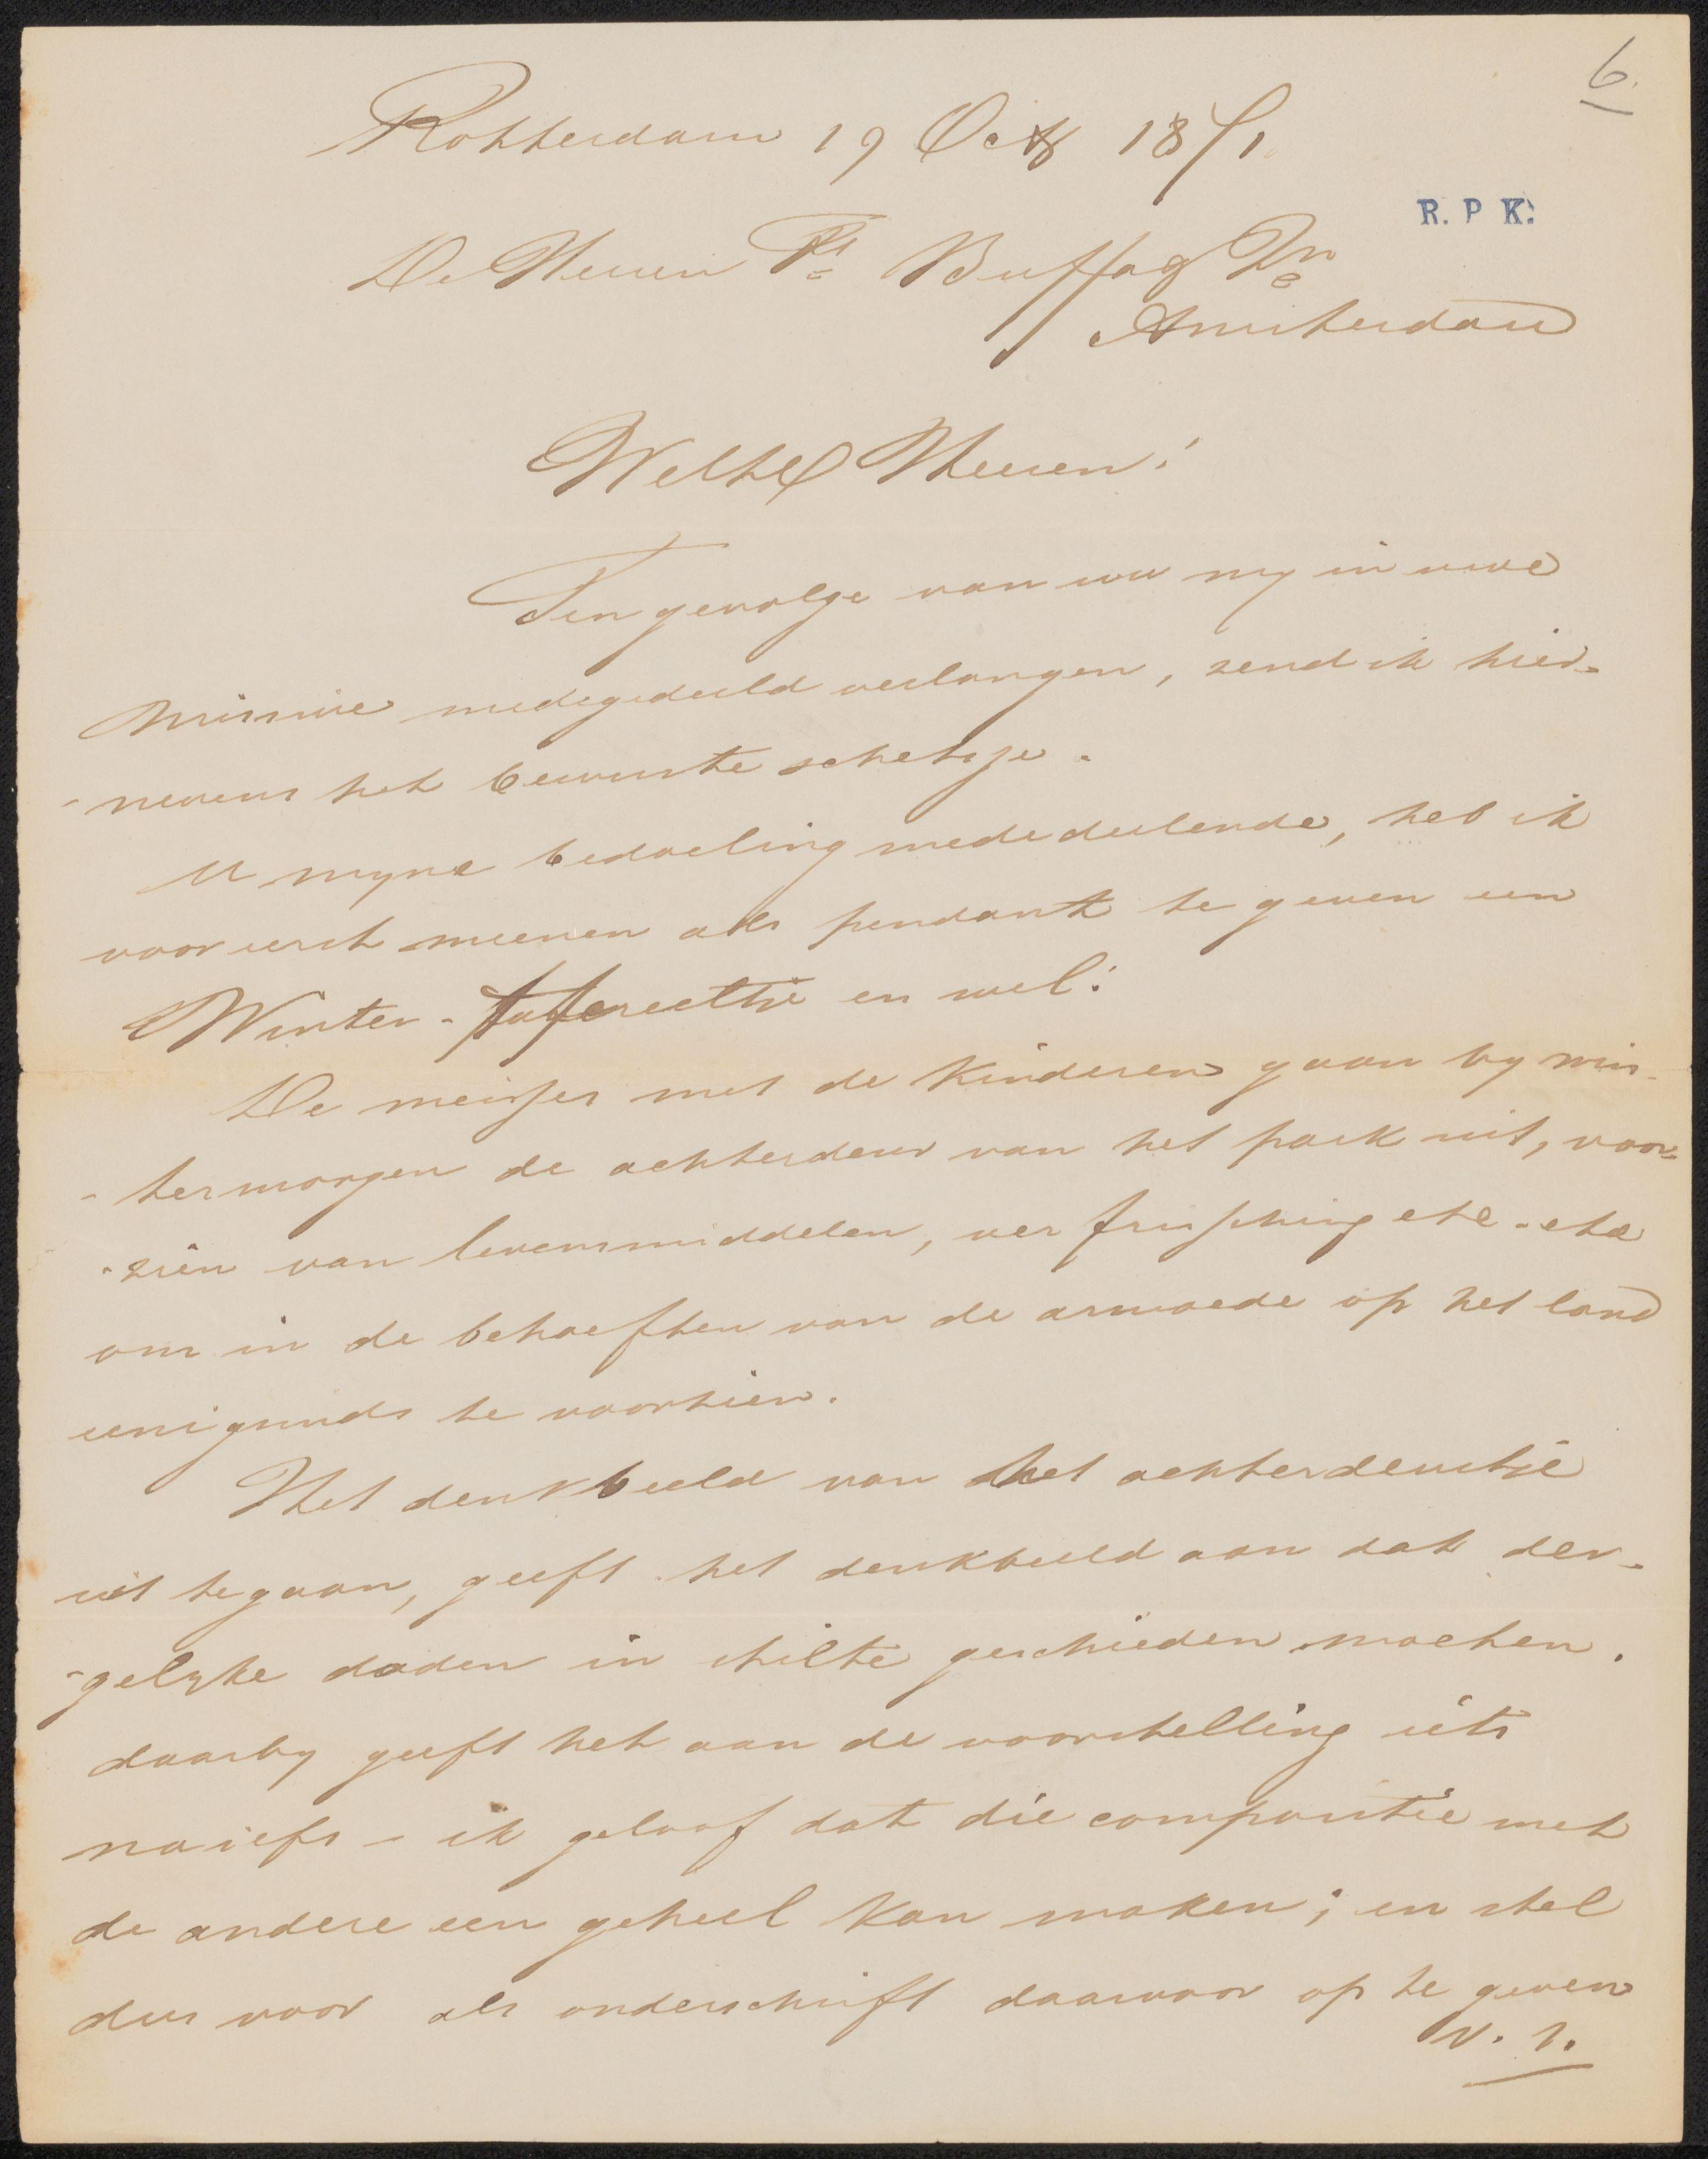 6.
Rotterdam 19 Oct 1871.
R. P. K.
De Heeren Fs Buffa & Zn
Amsterdam
WelEd Heeren!
Ten gevolge van uw my in uwe
missive medegedeeld verlangen, zend ik hier-
-nevens het bewuste schetsje.
U myne bedoeling mededeelende, heb ik
vooreerst meenen als pendant te geven een
Winter-tafereeltje en wel:
De meisjes met de kinderen gaan by win-
-termorgen de achterdeur van het park uit, voor-
-zien van levensmiddelen, verfrissching etc. etc
om in de behoeften van de armoede op het land
eenigzinds te voorzien.
Het denkbeeld van het achterdeurtje
uit te gaan, geeft het denkbeeld aan dat der-
-gelyke daden in stilte geschieden moeten.
daarby geeft het aan de voorstelling iets
naiefs - ik geloof dat die compositie met
de andere een geheel kan maken; en stel
dus voor als onderschrift daarvoor op te geven